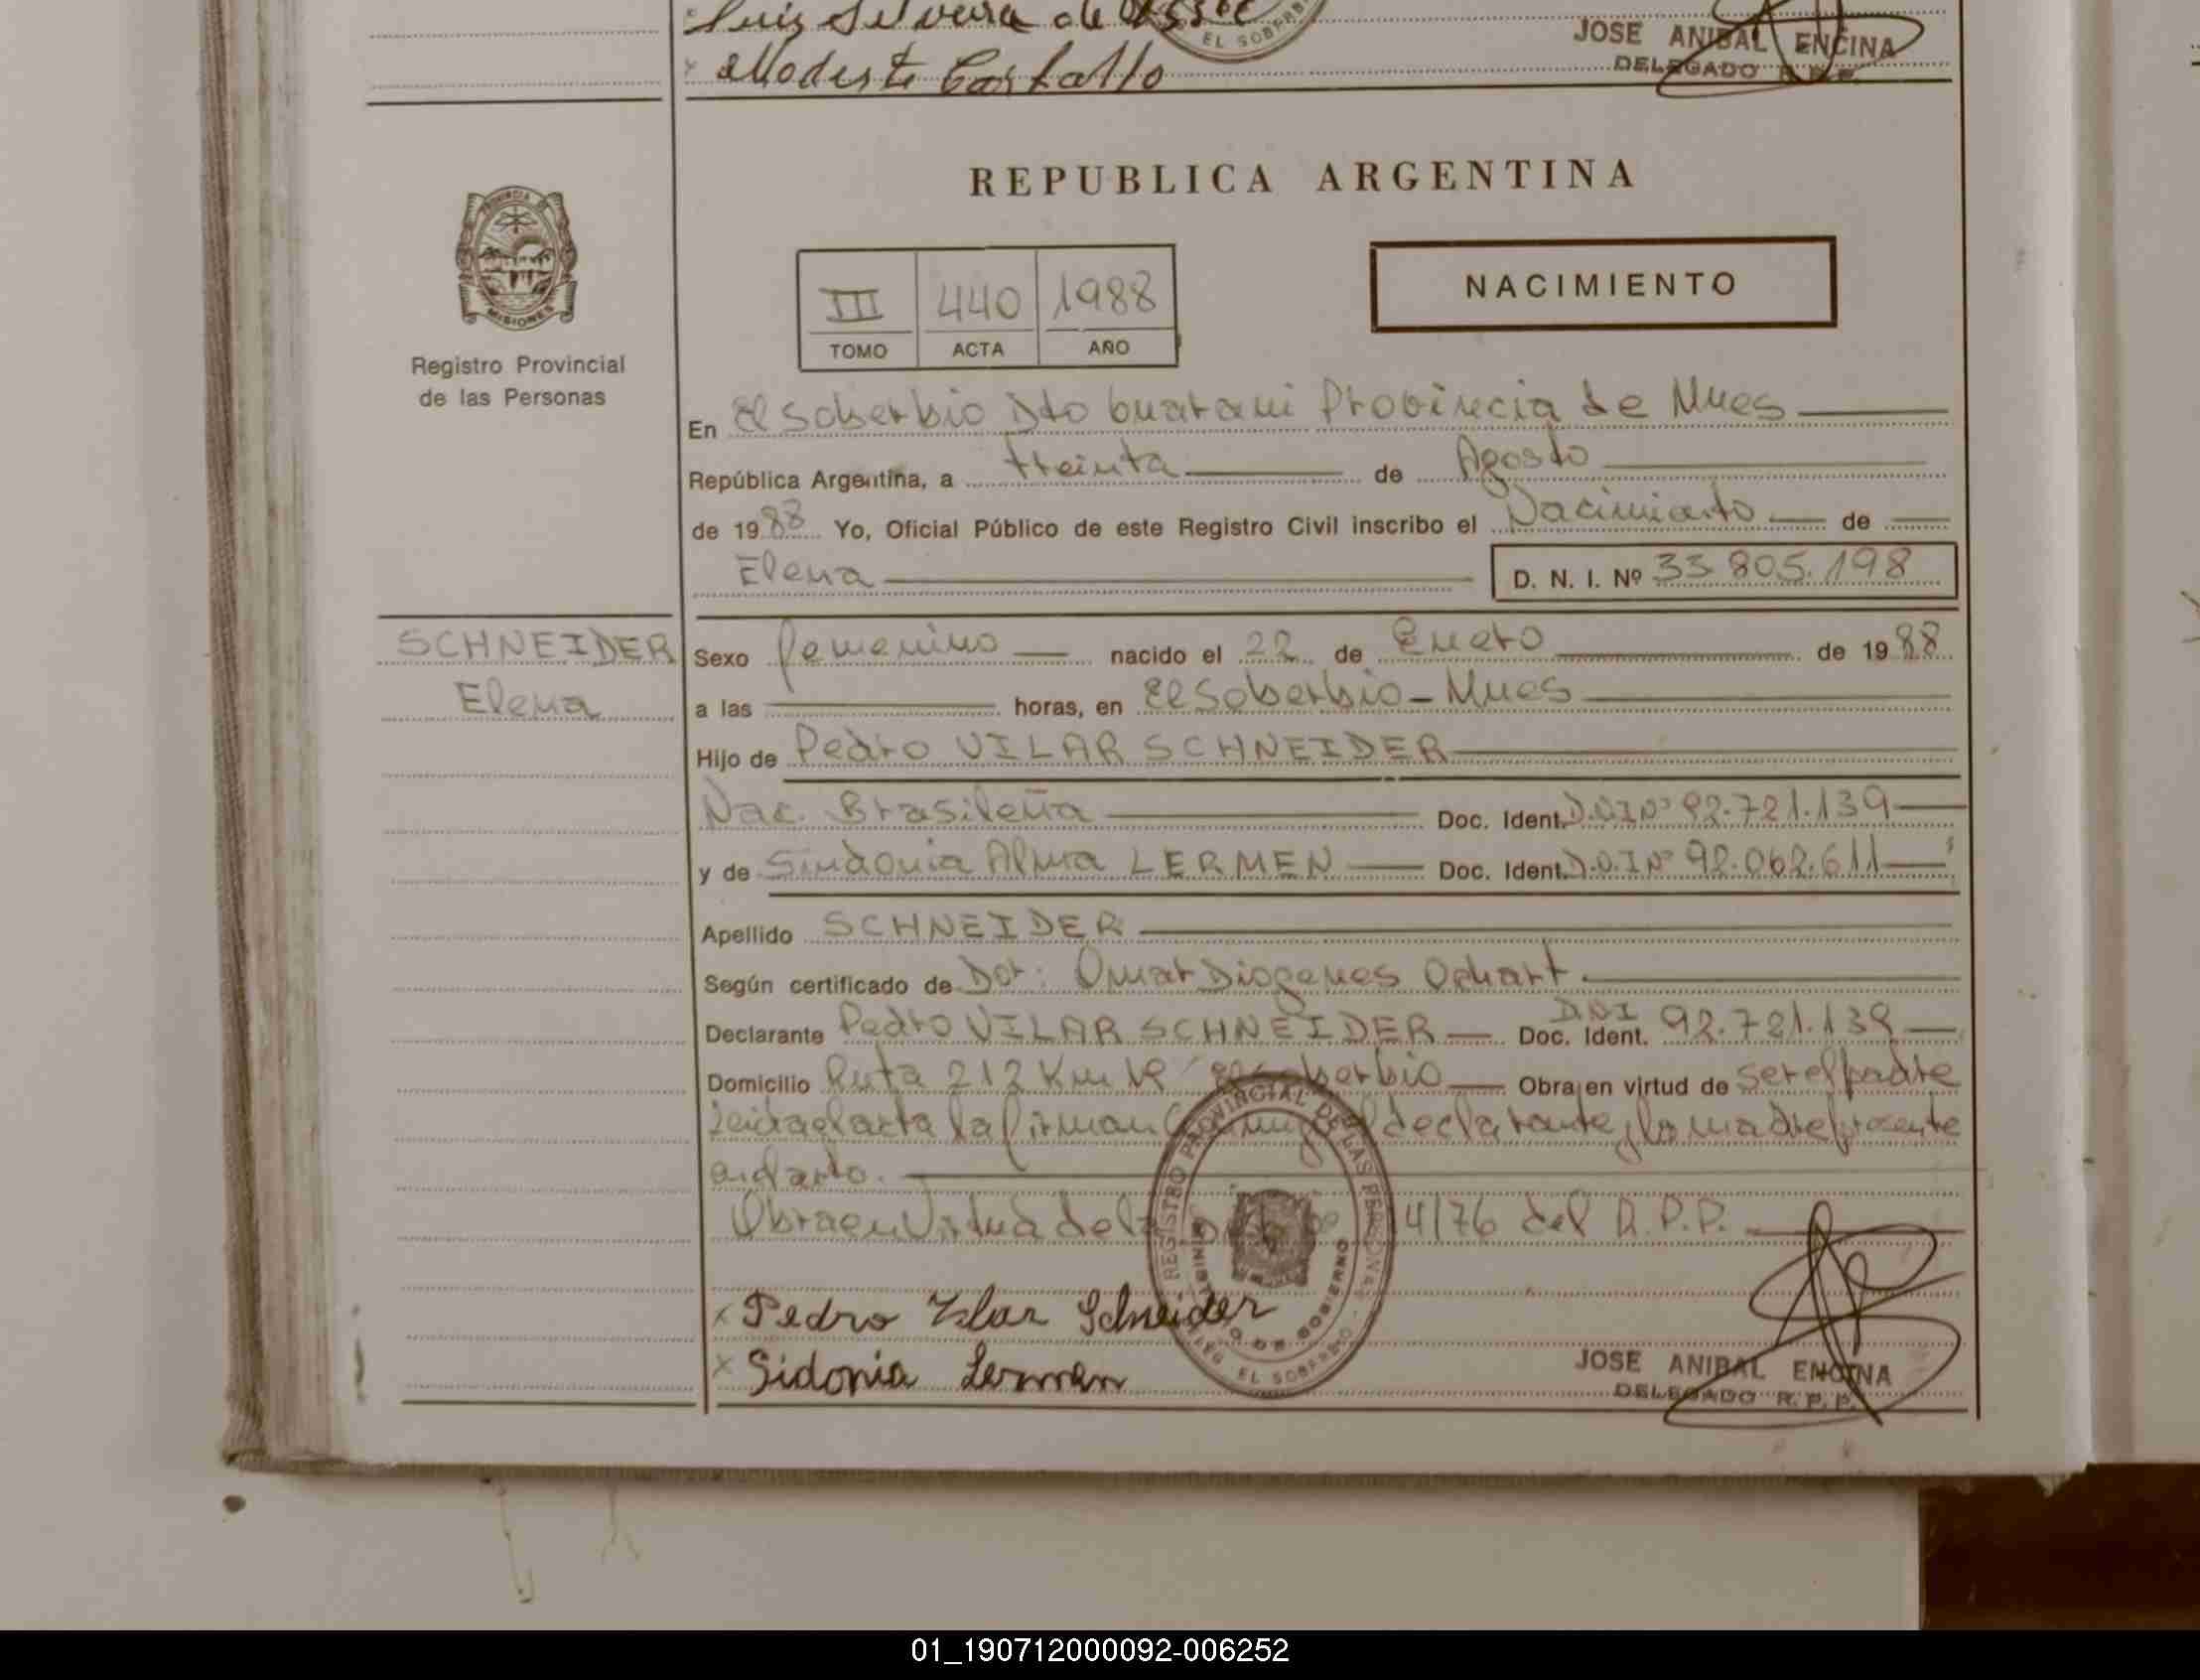 Luis Silveira de
EL SOBERB
JOSE ANIBAL ENCINA
DELEGADO R.P.P.
Modesto Carballo
REPUBLICA ARGENTINA
PROVINCIA DE
MISIONES
III 440 1988
TOMO ACTA AÑO
NACIMIENTO
Registro Provincial
de las Personas
En El Soberbio Dto Guarani Provincia de Mnes
República Argentina, a treinta de Agosto
de 1988 Yo, Oficial Público de este Registro Civil inscribo el Nacimiento de
Elena D. N. I. Nº 33.805.198
SCHNEIDER
Elena
Sexo femenino nacido el 22 de Enero de 1988
a las horas, en El Soberbio - Mnes
Hijo de Pedro VILAR SCHNEIDER
Nac. Brasileña Doc. Ident. D.N.I Nº 92.721.139
y de Sindonia Alma LERMEN Doc. Ident. D.N.I Nº 92.062.611
Apellido SCHNEIDER
Según certificado de Dor: Omar Diogenes Ophart
Declarante Pedro VILAR SCHNEIDER Doc. Ident. DNI 92.721.139
Domicilio Ruta 212 Km El Soberbio Obra en virtud de ser el padre
Leida el acta la firman el declarante y la madre presente
en el acto.
Obra en Virtud de la 14/76 del R.P.P.
REGISTRO PROVINCIAL DE LAS PERSONAS
MINISTERIO DE GOBIERNO
DELEG. EL SOBERBIO
x Pedro Vilar Schneider
x Sidonia Lermen
JOSE ANIBAL ENCINA
DELEGADO R.P.P.
01_190712000092-006252